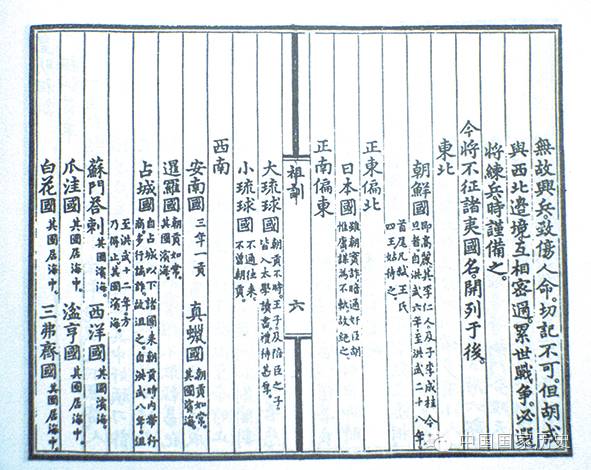 無故興兵。致傷人命。切記不可。但胡戎
與西北邊境。互相密邇。累世戰爭。必選
將練兵。時謹備之。
今將不征諸夷國名。開列于後。
東北
朝鮮國
即高麗。其李仁人。及子李成桂。今
旦者。自洪武六年。至洪武二十八年。
首尾凡弑王氏
四王。姑待之。
正東偏北
日本國
雖朝實詐。暗通奸臣胡
惟庸。謀為不軌。故絕之。
正南偏東
祖訓
六
大琉球國
朝貢不時。王子及陪臣之子。
皆入太學讀書。禮待甚厚。
小琉球國
不通往來。
不曾朝貢。
西南
安南國 三年一貢
真蠟國
朝貢如常。
其國濱海。
暹羅國
朝貢如常。
其國濱海。
占城國
自占城以下諸國。來朝貢時。內帶行
商。多行譎詐。故沮之。自洪武八年。沮
至洪武十二年。方
乃得止。其國濱海。
蘇門荅剌 其國濱海。
西洋國 其國濱海。
爪洼國 其國居海中。
湓亨國 其國居海中。
白花國 其國居海中。
三弗齊國 其國居海中。
中国国家历史